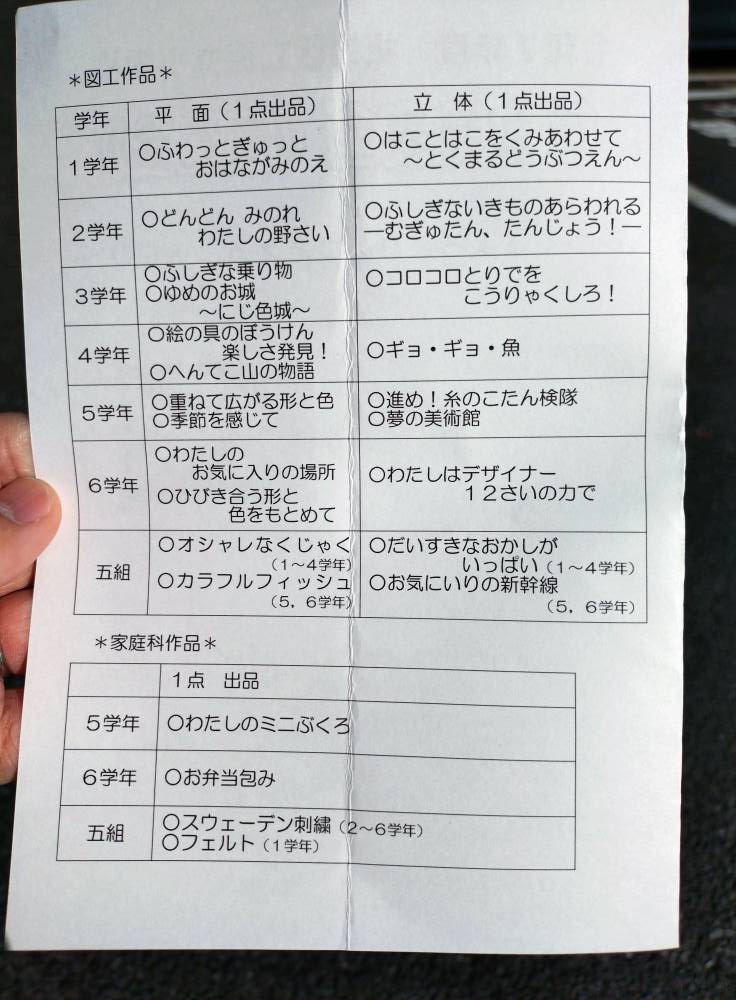 ＊図工作品＊
学年　平　面（１点出品）　立　体（１点出品）
１学年
○ふわっとぎゅっと
おはながみのえ
○はことはこをくみあわせて
～とくまるどうぶつえん～
２学年
○どんどん みのれ
わたしの野さい
○ふしぎないきものあらわれる
―むぎゅたん、たんじょう！―
３学年
○ふしぎな乗り物
○ゆめのお城
～にじ色城～
○コロコロとりでを
こうりゃくしろ！
４学年
○絵の具のぼうけん
楽しさ発見！
○へんてこ山の物語
○ギョ・ギョ・魚
５学年
○重ねて広がる形と色
○季節を感じて
○進め！糸のこたん検隊
○夢の美術館
６学年
○わたしの
お気に入りの場所
○ひびき合う形と
色をもとめて
○わたしはデザイナー
１２さいの力で
五組
○オシャレなくじゃく
（１～４学年）
○カラフルフィッシュ
（５，６学年）
○だいすきなおかしが
いっぱい（１～４学年）
○お気にいりの新幹線
（５，６学年）
＊家庭科作品＊
１点　出品
５学年　○わたしのミニぶくろ
６学年　○お弁当包み
五組
○スウェーデン刺繍（２～６学年）
○フェルト（１学年）